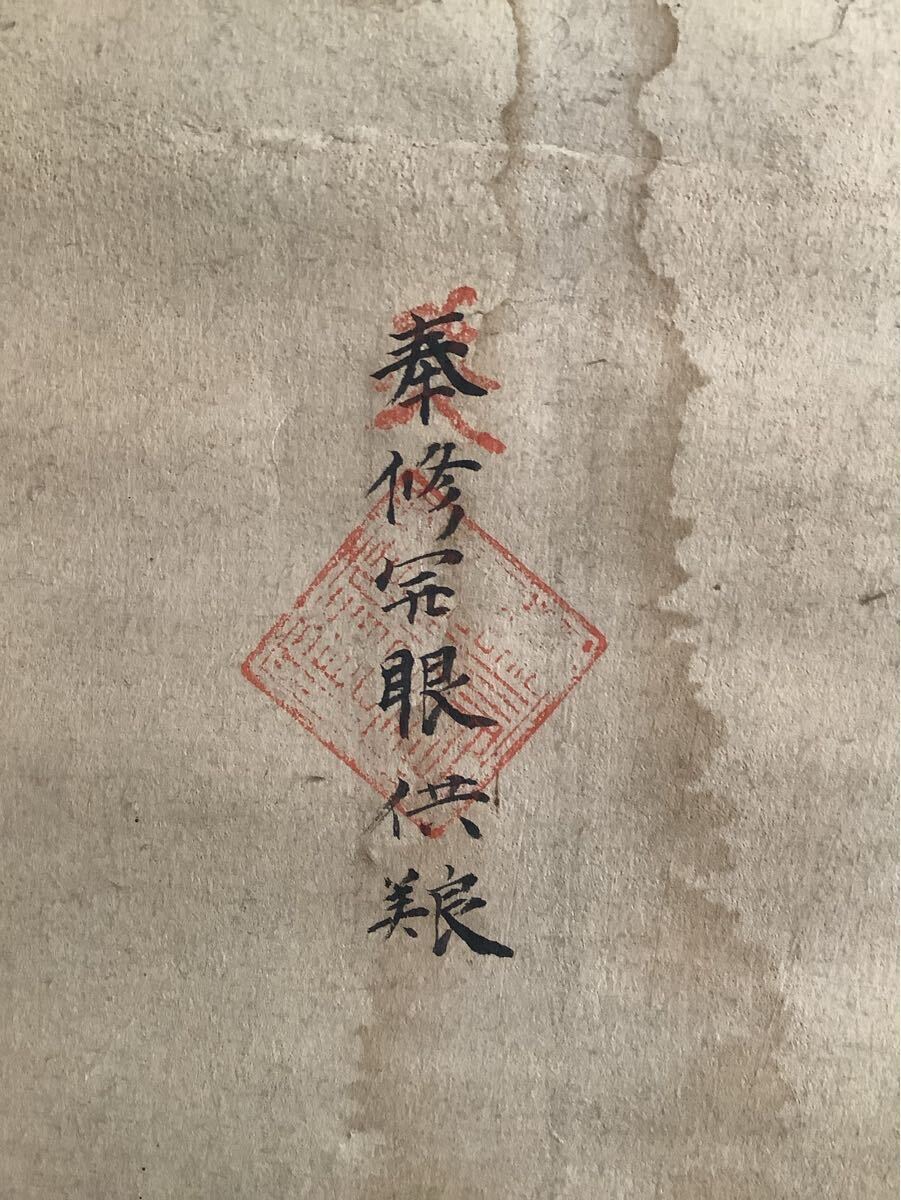 奉修開眼供養